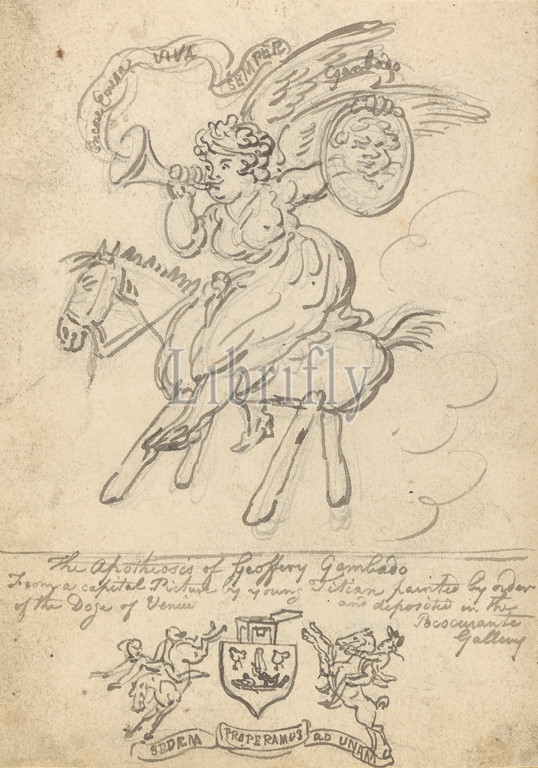 VIVA SEMPER
Gambado
Librifly
The Apotheosis of Geoffery Gambado
From a capital Picture by young Titian painted by order
of the Doge of Venice and deposited in the
Pococurante
Gallery
SEDEM PROPERAMUS AD UNAM